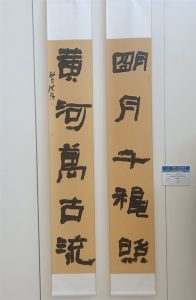 朙月千穐照
黄河萬古流